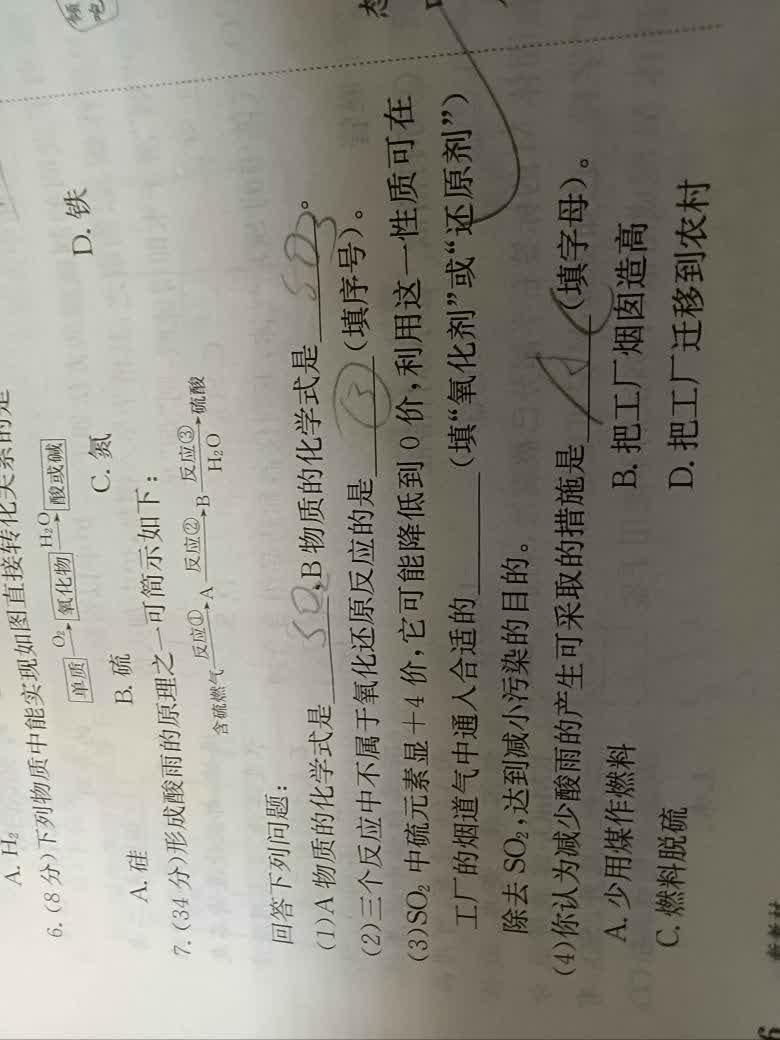 A. H₂
6. (8分)下列物质中能实现如图直接转化关系的是
单质 O₂→ 氧化物 H₂O→ 酸或碱
A. 硅 B. 硫 C. 氮 D. 铁
7. (34分)形成酸雨的原理之一可简示如下:
含硫燃气 反应①→ A 反应②→ B 反应③ H₂O→ 硫酸
回答下列问题:
(1)A 物质的化学式是 SO₂ ,B 物质的化学式是 SO₃ 。
(2)三个反应中不属于氧化还原反应的是 ③ (填序号)。
(3)SO₂ 中硫元素显+4 价,它可能降低到 0 价,利用这一性质可在
工厂的烟道气中通入合适的______(填“氧化剂”或“还原剂”)
除去 SO₂,达到减小污染的目的。
(4)你认为减少酸雨的产生可采取的措施是 A C (填字母)。
A. 少用煤作燃料 B. 把工厂烟囱造高
C. 燃料脱硫 D. 把工厂迁移到农村
6